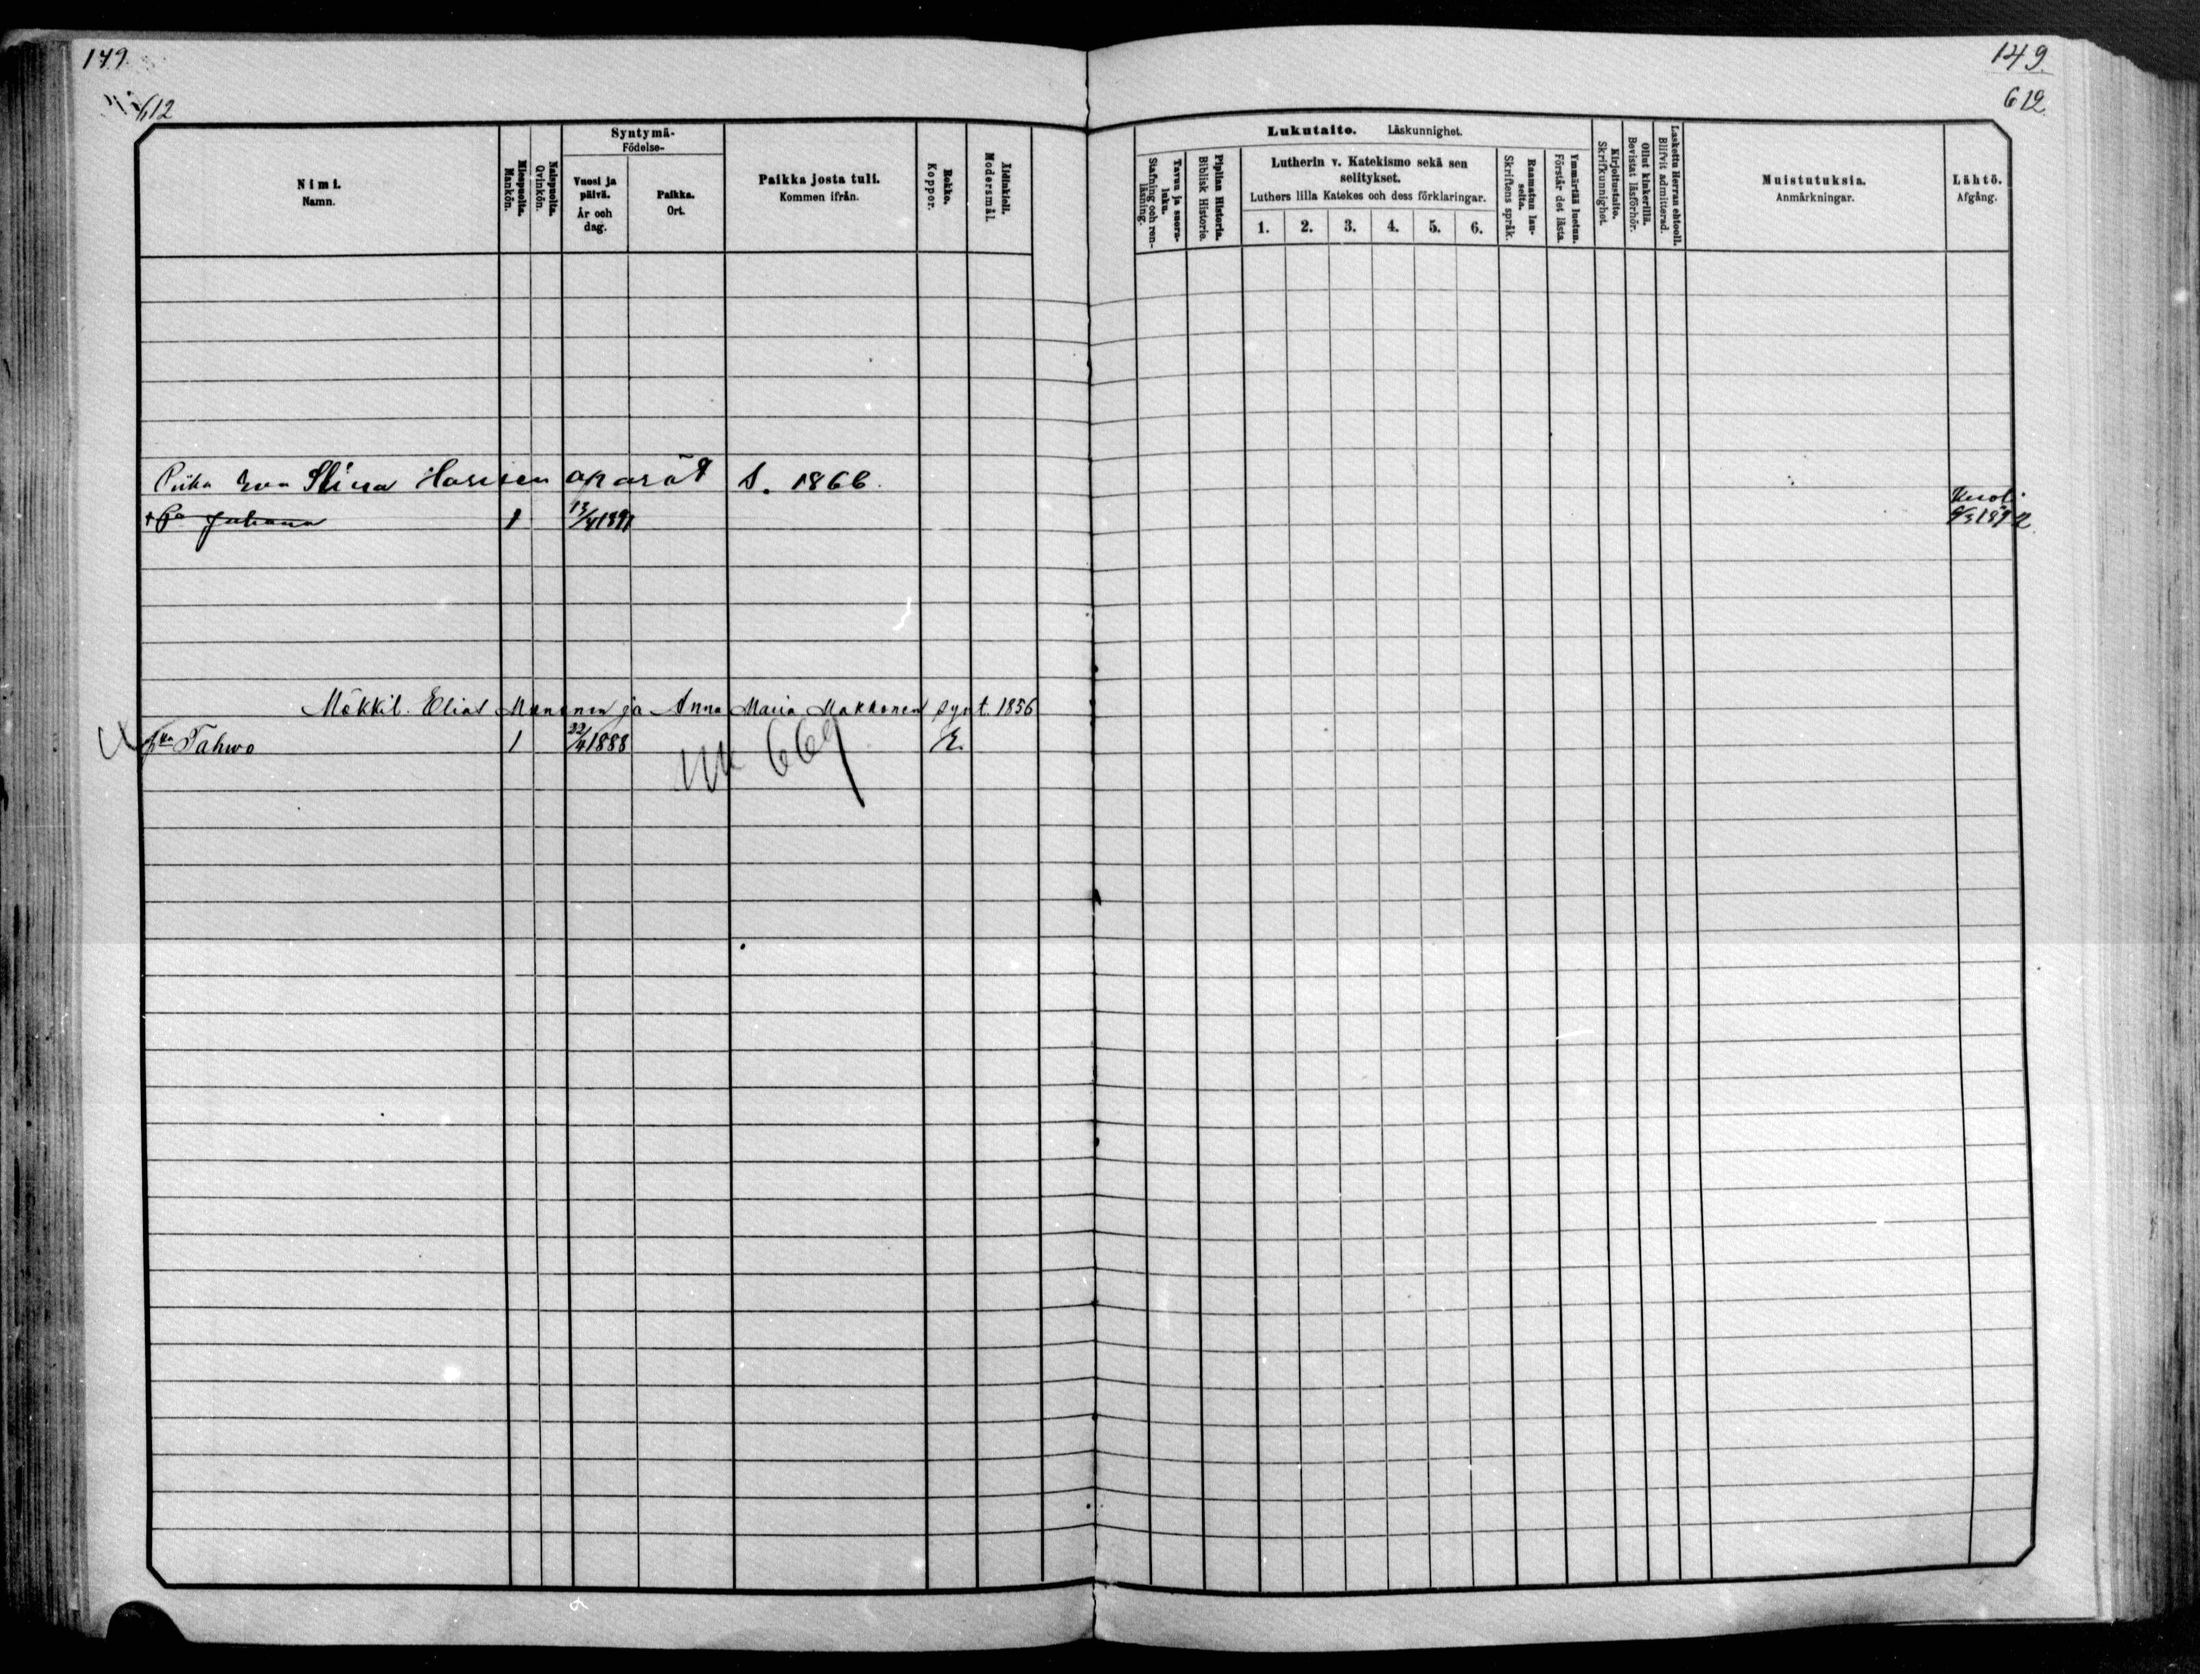 149.
149.
612
612
Syntymä-
Födelse-
Nimi.
Namn.
Miespuolta.
Mankön.
Naispuolta.
Qvinkön.
Vuosi ja päivä.
År och dag.
Paikka.
Ort.
Paikka josta tuli.
Kommen ifrån.
Rokko.
Koppor.
Äidinkieli.
Modersmål.
Lukutaito. Läskunnighet.
Tavuu ja suora-luku.
Stafning och ren-läsning.
Piplian Historia.
Biblisk Historie.
Lutherin v. Katekismo sekä sen
selitykset.
Luthers lilla Katekes och dess förklaringar.
1. 2. 3. 4. 5. 6.
Raamatun lau-seita.
Skriftens språk.
Ymmärtää luetun.
Förstår det lästa.
Kirjoitustaito.
Skrifkunnighet.
Ollut kinkerillä.
Bevistat läsförhör.
Laskettu Herran ehtooll.
Blifvit admitterad.
Muistutuksia.
Anmärkningar.
Lähtö.
Afgång.
Piika Eva Stina aparät S. 1866.
Juhana 1 13/4 1891 Kuoli 1892
Mökkil. Elias Manonen ja Anna Maria Makkonen synt. 1856
Tahwo 1 22/4 1888 E.
669